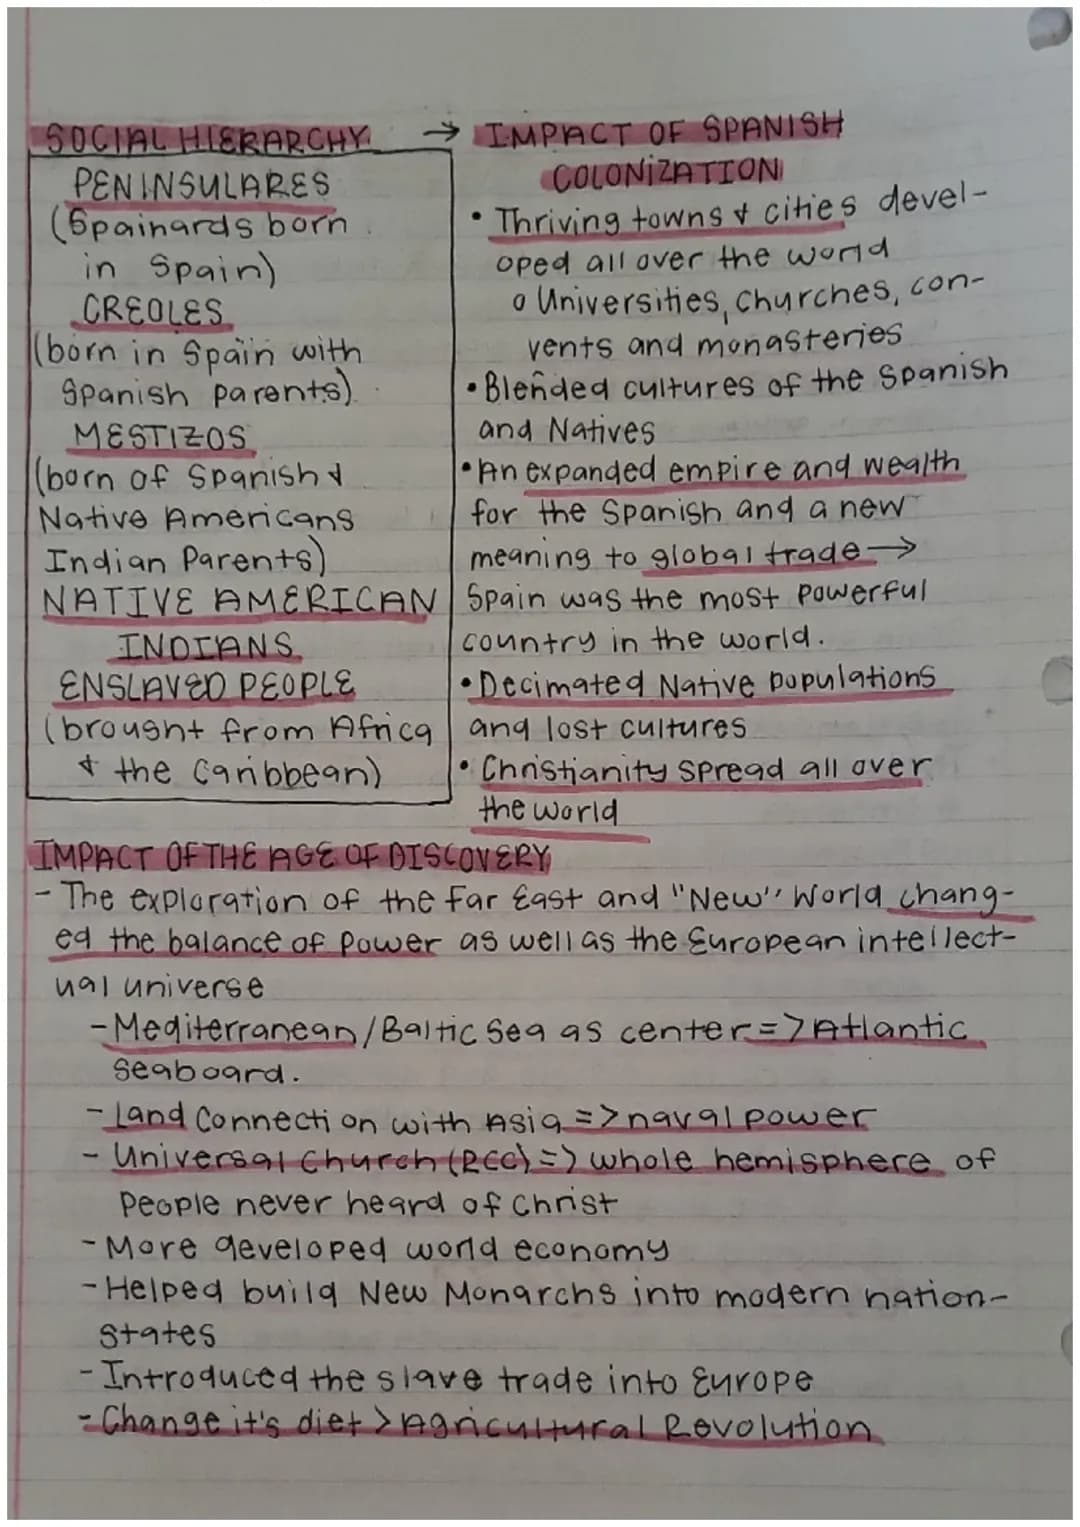 SOCIAL HIERARCHY
PENINSULARES
(Spainards born
in Spain)
CREOLES
(born in Spain with
Spanish parents)
MESTIZOS
(born of Spanish &
Native Americans
Indian Parents)
NATIVE AMERICAN
INDIANS
ENSLAVED PEOPLE
(brought from Africa
& the Caribbean)
→ IMPACT OF SPANISH
COLONIZATION
• Thriving towns & cities devel-
oped all over the world
o Universities, churches, con-
vents and monasteries
• Blended cultures of the Spanish
and Natives
• An expanded empire and wealth
for the Spanish and a new
meaning to global trade →
Spain was the most powerful
country in the world.
• Decimated Native populations
and lost cultures
• Christianity spread all over
the world
IMPACT OF THE AGE OF DISCOVERY
- The exploration of the Far East and "New" World chang-
ed the balance of power as well as the European intellect-
ual universe
- Mediterranean/Baltic Sea as center => Atlantic
seaboard.
- Land Connection with Asia => naval power
- Universal Church (RCC) => whole hemisphere of
People never heard of Christ
- More developed world economy
- Helped build New Monarchs into modern nation-
states
- Introduced the slave trade into Europe
- Change it's diet > Agricultural Revolution